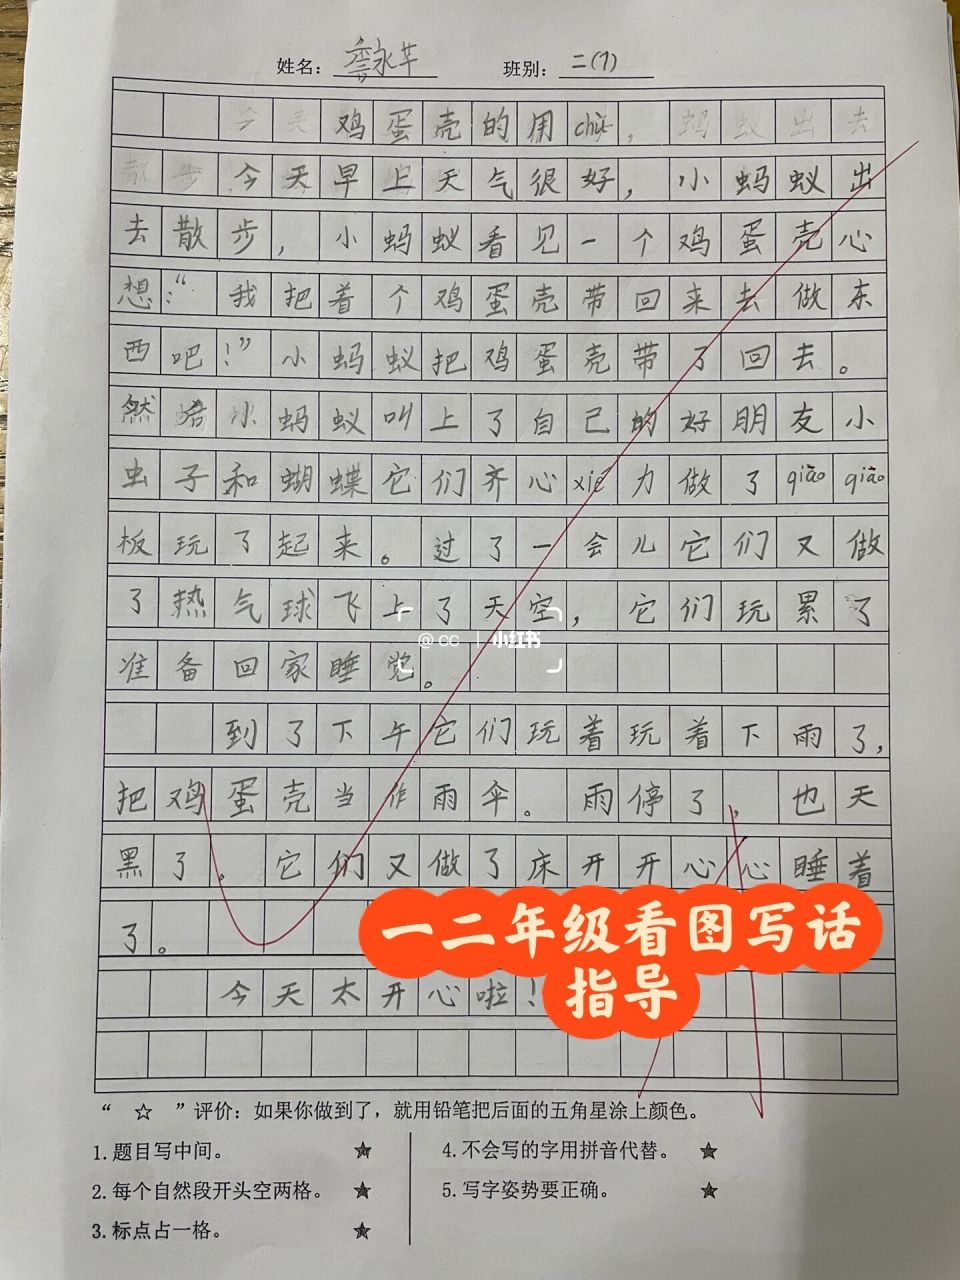 姓名： 永芊 班别：二(1)
鸡蛋壳的用chù，
今天早上天气很好，小蚂蚁出
去散步，小蚂蚁看见一个鸡蛋壳心
想：“我把着个鸡蛋壳带回来去做东
西吧！”小蚂蚁把鸡蛋壳带了回去。
然 小蚂蚁叫上了自己的好朋友小
虫子和蝴蝶它们齐心xié力做了qiāo qiāo
板玩了起来。过了一会儿它们又做
了热气球飞上了天空，它们玩累了
准备回家睡觉。
到了下午它们玩着玩着下雨了，
把鸡蛋壳当作雨伞。雨停了，也天
黑了。它们又做了床开开心心睡着
了。
今天太开心啦！
@cc 小红书
一二年级看图写话
指导
“ ☆ ”评价：如果你做到了，就用铅笔把后面的五角星涂上颜色。
1.题目写中间。 ★
2.每个自然段开头空两格。 ★
3.标点占一格。 ★
4.不会写的字用拼音代替。 ★
5.写字姿势要正确。 ★